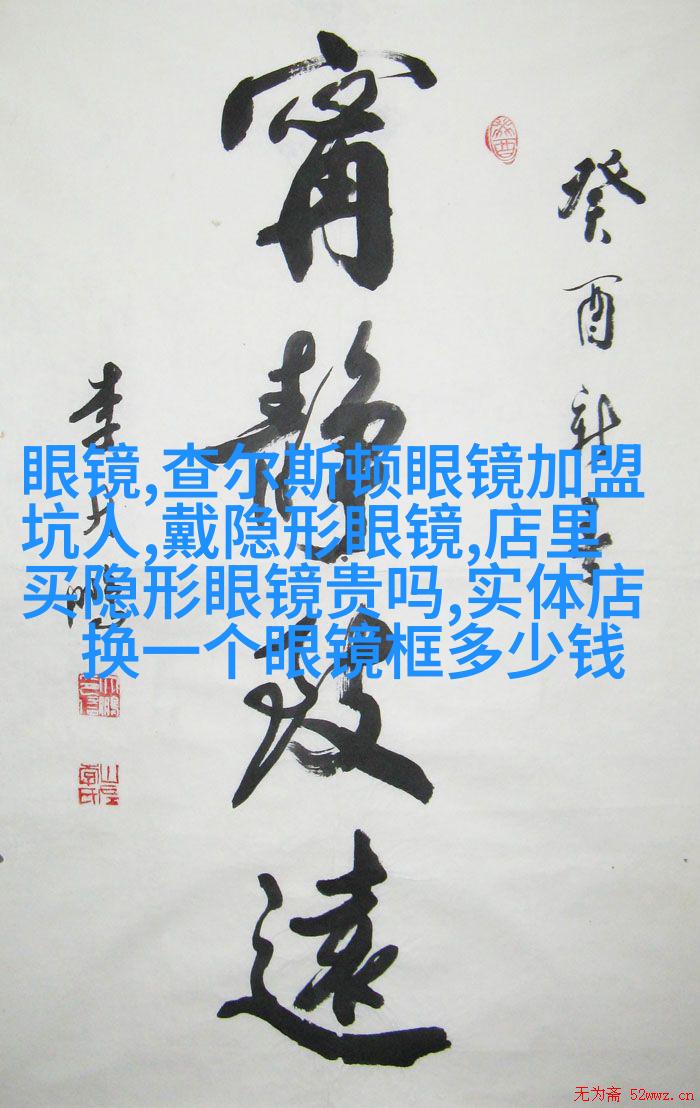 癸酉新春
甯静致远
李大鹏
眼镜,查尔斯顿眼镜加盟
坑人,戴隐形眼镜,店里
买隐形眼镜贵吗,实体店
换一个眼镜框多少钱
无为斋 52wwz.cn